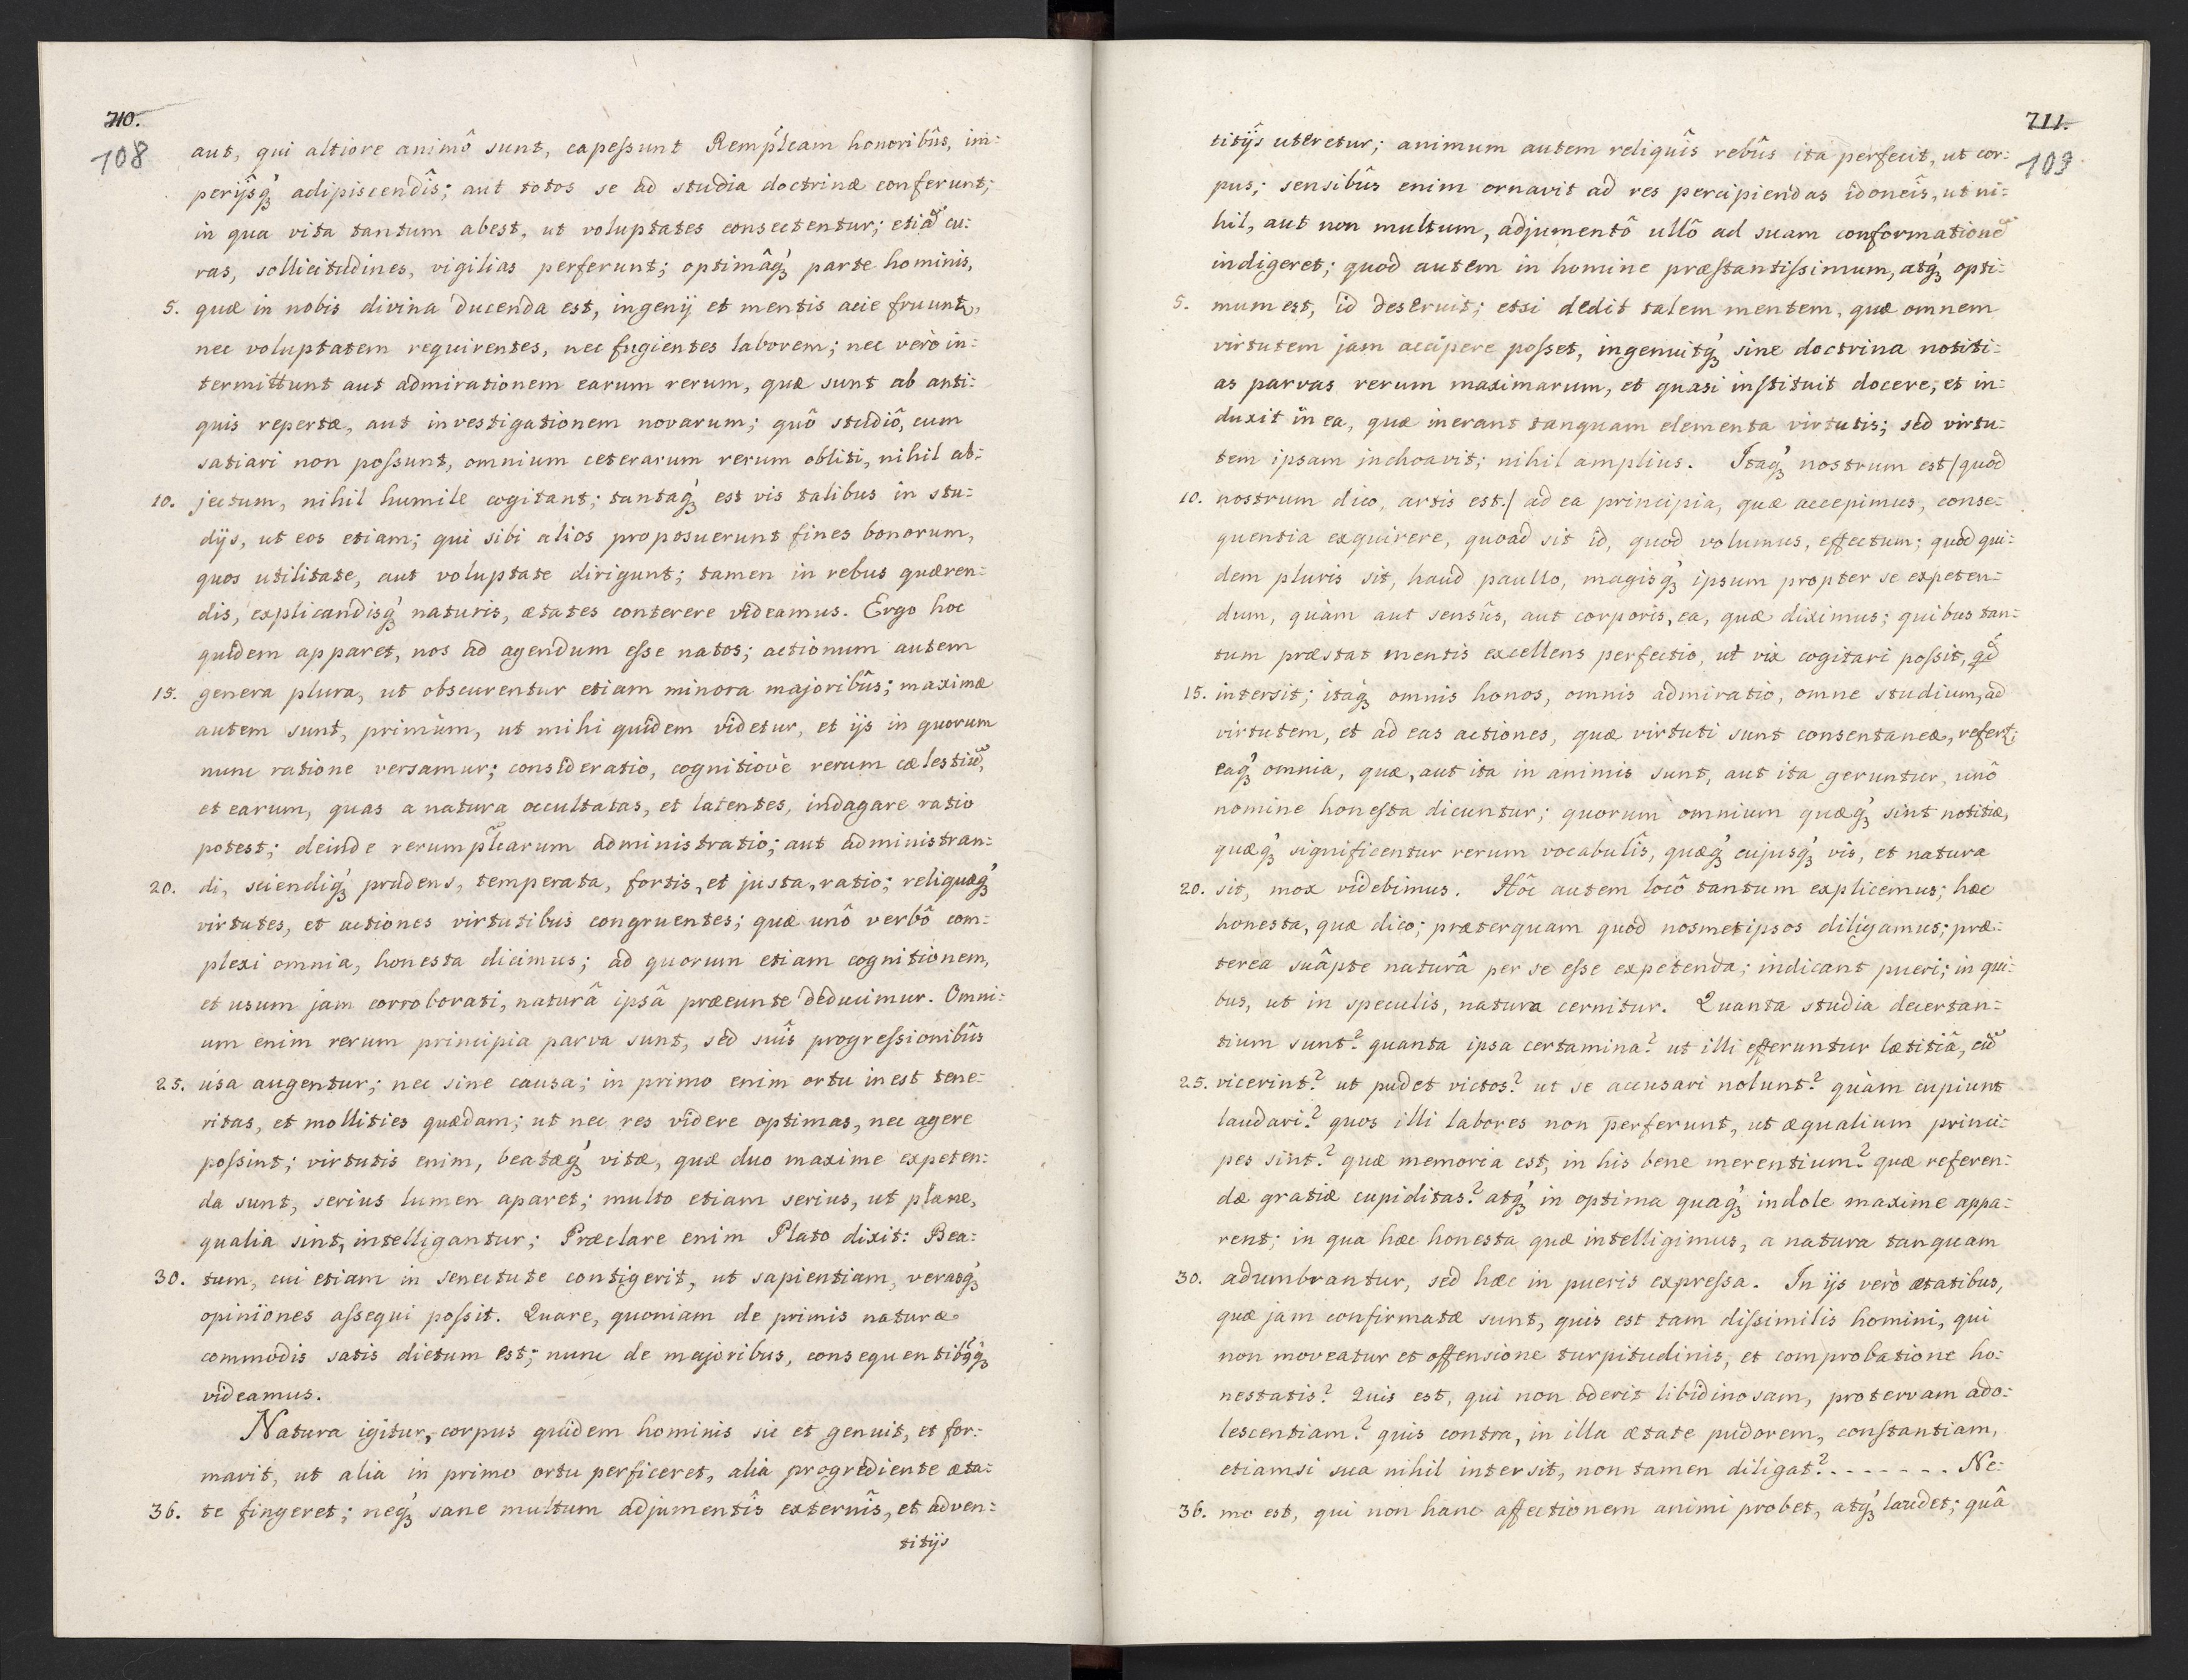 710.
108
aut, qui altiore animô sunt, capeſsunt Remp̃lcam honoribûs, im:
perijsq́ꝫ adipiscendîs; aut totos se ad studia doctrinæ conferunt;
in qua vita tantum abest, ut voluptates consectentur; etiā cu:
ras, sollicitudines, vigilias perferunt; optimâq́ꝫ parte hominis,
5. quæ in nobis divina ducenda est, ingenij et mentis acie fruuntr,
nec voluptatem requirentes, nec fugientes laborem; nec verò in:
termittunt aut admirationem earum rerum, quæ sunt ab anti:
quis repertæ, aut investigationem novarum; quô studiô, cum
satiari non poſsunt, omnium ceterarum rerum obliti, nihil ab:
10. jectum, nihil humile cogitant; tantaq́ꝫ est vis talibus in stu:
dijs, ut eos etiam; qui sibi alios proposuerunt fines bonorum,
quos utilitate, aut voluptate dirigunt; tamen in rebus quæren:
dis, explicandisq́ꝫ naturis, ætates conterere videamus. Ergo hoc
quidem apparet, nos ad agendum eſse natos; actionum autem
15. genera plura, ut obscurentur etiam minora majoribûs; maximæ
autem sunt, primùm, ut mihi quidem videtur, et ijs in quorum
nunc ratione versamur; consideratio, cognitiovè rerum cælestiū,
et earum, quas a natura occultatas, et latentes, indagare ratio
potest; deinde rerump̃lcarum administratio; aut administran:
20. di, sciendiq́ꝫ prudens, temperata, fortis, et justa, ratio; reliquæq́ꝫ
virtutes, et actiones virtutibus congruentes; quæ unô verbô com:
plexi omnia, honesta dicimus; ad quorum etiam cognitionem,
et usum jam corroborati, naturâ ipsâ præeunte deducimur. Omni:
um enim rerum principia parva sunt, sed suîs progreſsionibûs
25. usa augentur; nec sine causa; in primo enim ortu inest tene:
ritas, et mollities quædam; ut nec res videre optimas, nec agere
poſsint; virtutis enim, beatæq́ꝫ vitæ, quæ duo maxime expeten:
da sunt, serius lumen aparet; multo etiam serius, ut plane,
qualia sint, intelligantur; Præclare enim Plato dixit: Bea:
30. tum, cui etiam in senectute contigerit, ut sapientiam, verasq́ꝫ
opiniones aſsequi poſsit. Quare, quoniam de primis naturæ
commodis satis dictum est; nunc de majoribus, consequentibꝰq́ꝫ
videamus.
Natura igitur, corpus quidem hominis sic et genuit, et for:
mavit, ut alia in primo ortu perficeret, alia progrediente æta:
36. te fingeret; neq́ꝫ sane multum adjumentîs externîs, et adven:
titijs
711.
109
titijs uteretur; animum autem reliquîs rebûs ita perfecit, ut cor:
pus; sensibûs enim ornavit ad res percipiendas idoneîs, ut ni:
hil, aut non multum, adjumentô ullô ad suam conformationē
indigeret; quod autem in homine præſtantiſsimum, atq́ꝫ opti:
5. mum est, id deseruit; etsi dedit talem mentem, quæ omnem
virtutem jam accipere poſset, ingenuitq́ꝫ sine doctrina notiti:
as parvas rerum maximarum, et quasi inſtituit docere, et in:
duxit in ea, quæ inerant tanquam elementa virtutis; sed virtu:
tem ipsam inchoavit; nihil amplius. Itaq́ꝫ nostrum est/ quod
10. nostrum dico, artis est./ ad ea principia, quæ accepimus, conse:
quentia exquirere, quoad sit id, quod volumus, effectum; quod qui:
dem pluris sit, haud paullo, magisq́ꝫ ipsum propter se expeten:
dum, quàm aut sensûs, aut corporis, ea, quæ diximus; quibus tan:
tum præstat mentis excellens perfectio, ut vix cogitari poſsit, qd́
15. intersit; itaq́ꝫ omnis honos, omnis admiratio, omne studium, ad
virtutem, et ad eas actiones, quæ virtuti sunt consentaneæ, refertr;
eaq́ꝫ omnia, quæ, aut ita in animis sunt, aut ita geruntur, unô
nomine honeſta dicuntur; quorum omnium quæq́ꝫ sint notitiæ,
quæq́ꝫ significentur rerum vocabulîs, quæq́ꝫ cujusq́ꝫ vis, et natura
20. sit, mox videbimus. Hôc autem locô tantum explicemus; hæc
honesta, quæ dico; præterquam quod nosmetipsos diligamus; præ:
terea suâpte naturâ per se eſse expetenda; indicant pueri; in qui:
bus, ut in speculis, natura cernitur. Quanta studia decertan:
tium sunt? quanta ipsa certamina? ut illi efferuntur lætitiâ, cū
25. vicerint? ut pudet victos? ut se accusari nolunt? quàm cupiunt
laudari? quos illi labores non perferunt, ut æqualium princi:
pes sint? quæ memoria est, in his bene merentium? quæ referen:
dæ gratiæ cupiditas? atq́ꝫ in optima quaq́ꝫ indole maxime appa:
rent; in qua hæc honesta quæ intelligimus, a natura tanquam
30. adumbrantur, sed hæc in pueris expreſsa. In ijs verò ætatibus,
quæ jam confirmatæ sunt, quis est tam diſsimilis homini, qui
non moveatur et offensione turpitudinis, et comprobatione ho:
nestatis? Quis est, qui non oderit libidinosam, protervam ado:
lescentiam? quis contra, in illa ætate pudorem, conſtantiam,
etiamsi sua nihil intersit, non tamen diligat? - - - - - - - Ne:
36. mo est, qui non hanc affectionem animi probet, atq́ꝫ laudet; quâ